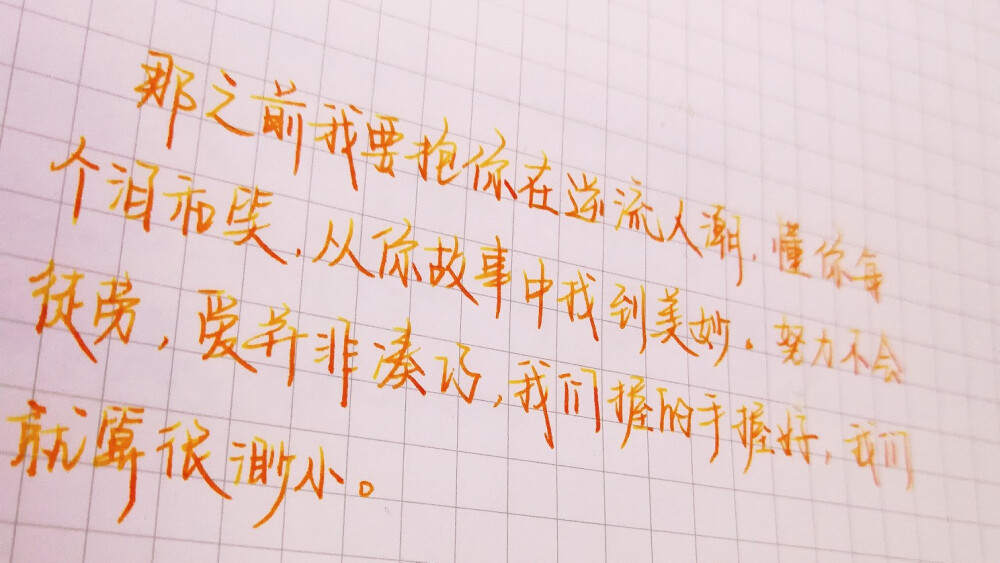 那之前我要抱你在逆流人潮,懂你每
个泪和笑,从你故事中找到美妙。努力不会
徒劳,爱并非凑巧,我们握的手握好,我们
就算很渺小。